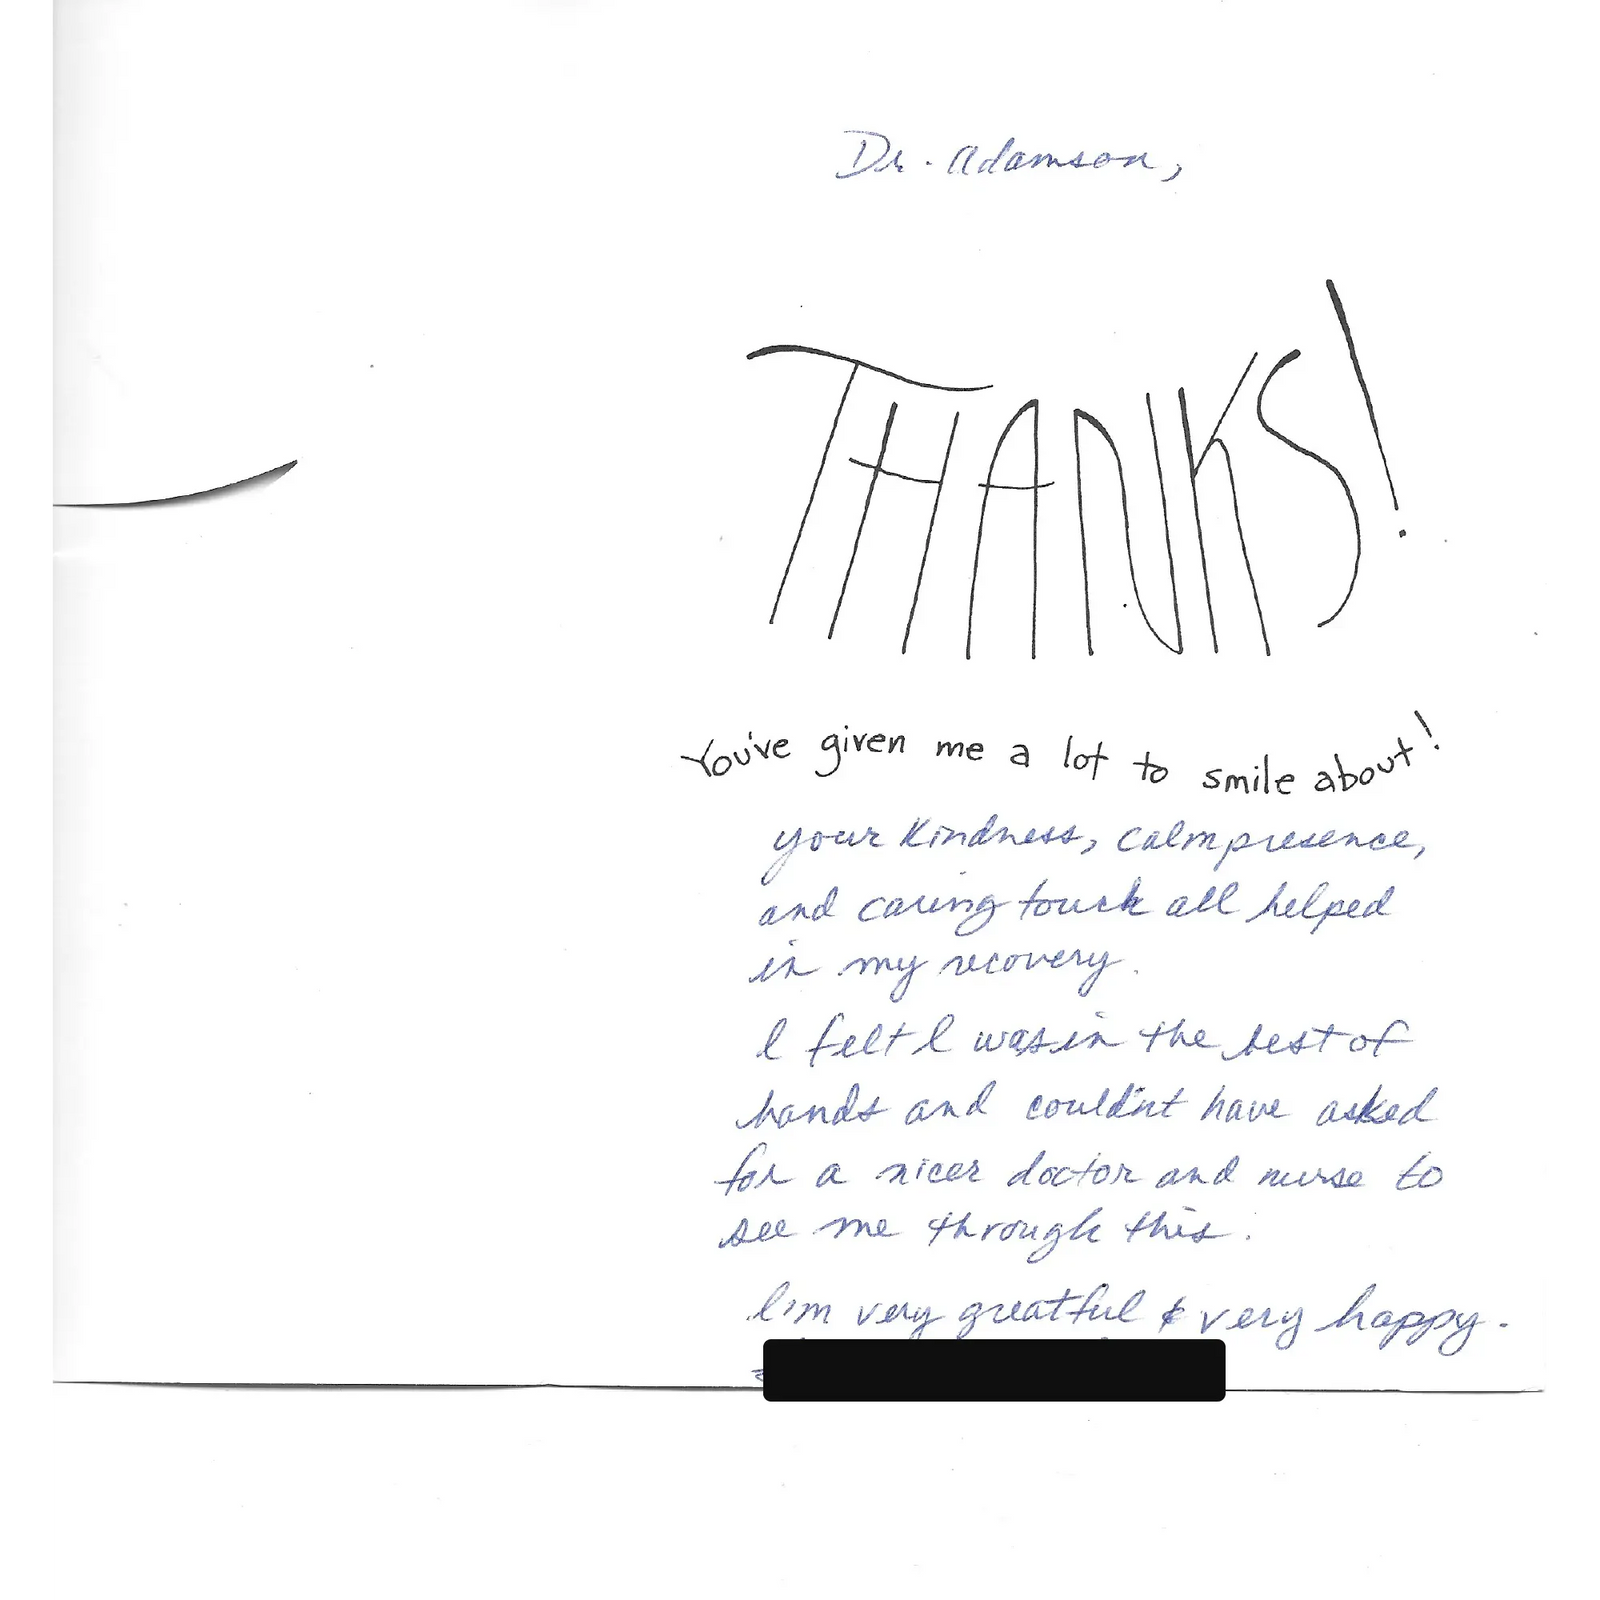 Dr. Adamson,
THANKS!
You've given me a lot to smile about!
your kindness, calm presence,
and caring touch all helped
in my recovery.
I felt I was in the best of
hands and couldn't have asked
for a nicer doctor and nurse to
see me through this.
I'm very greatful & very happy.